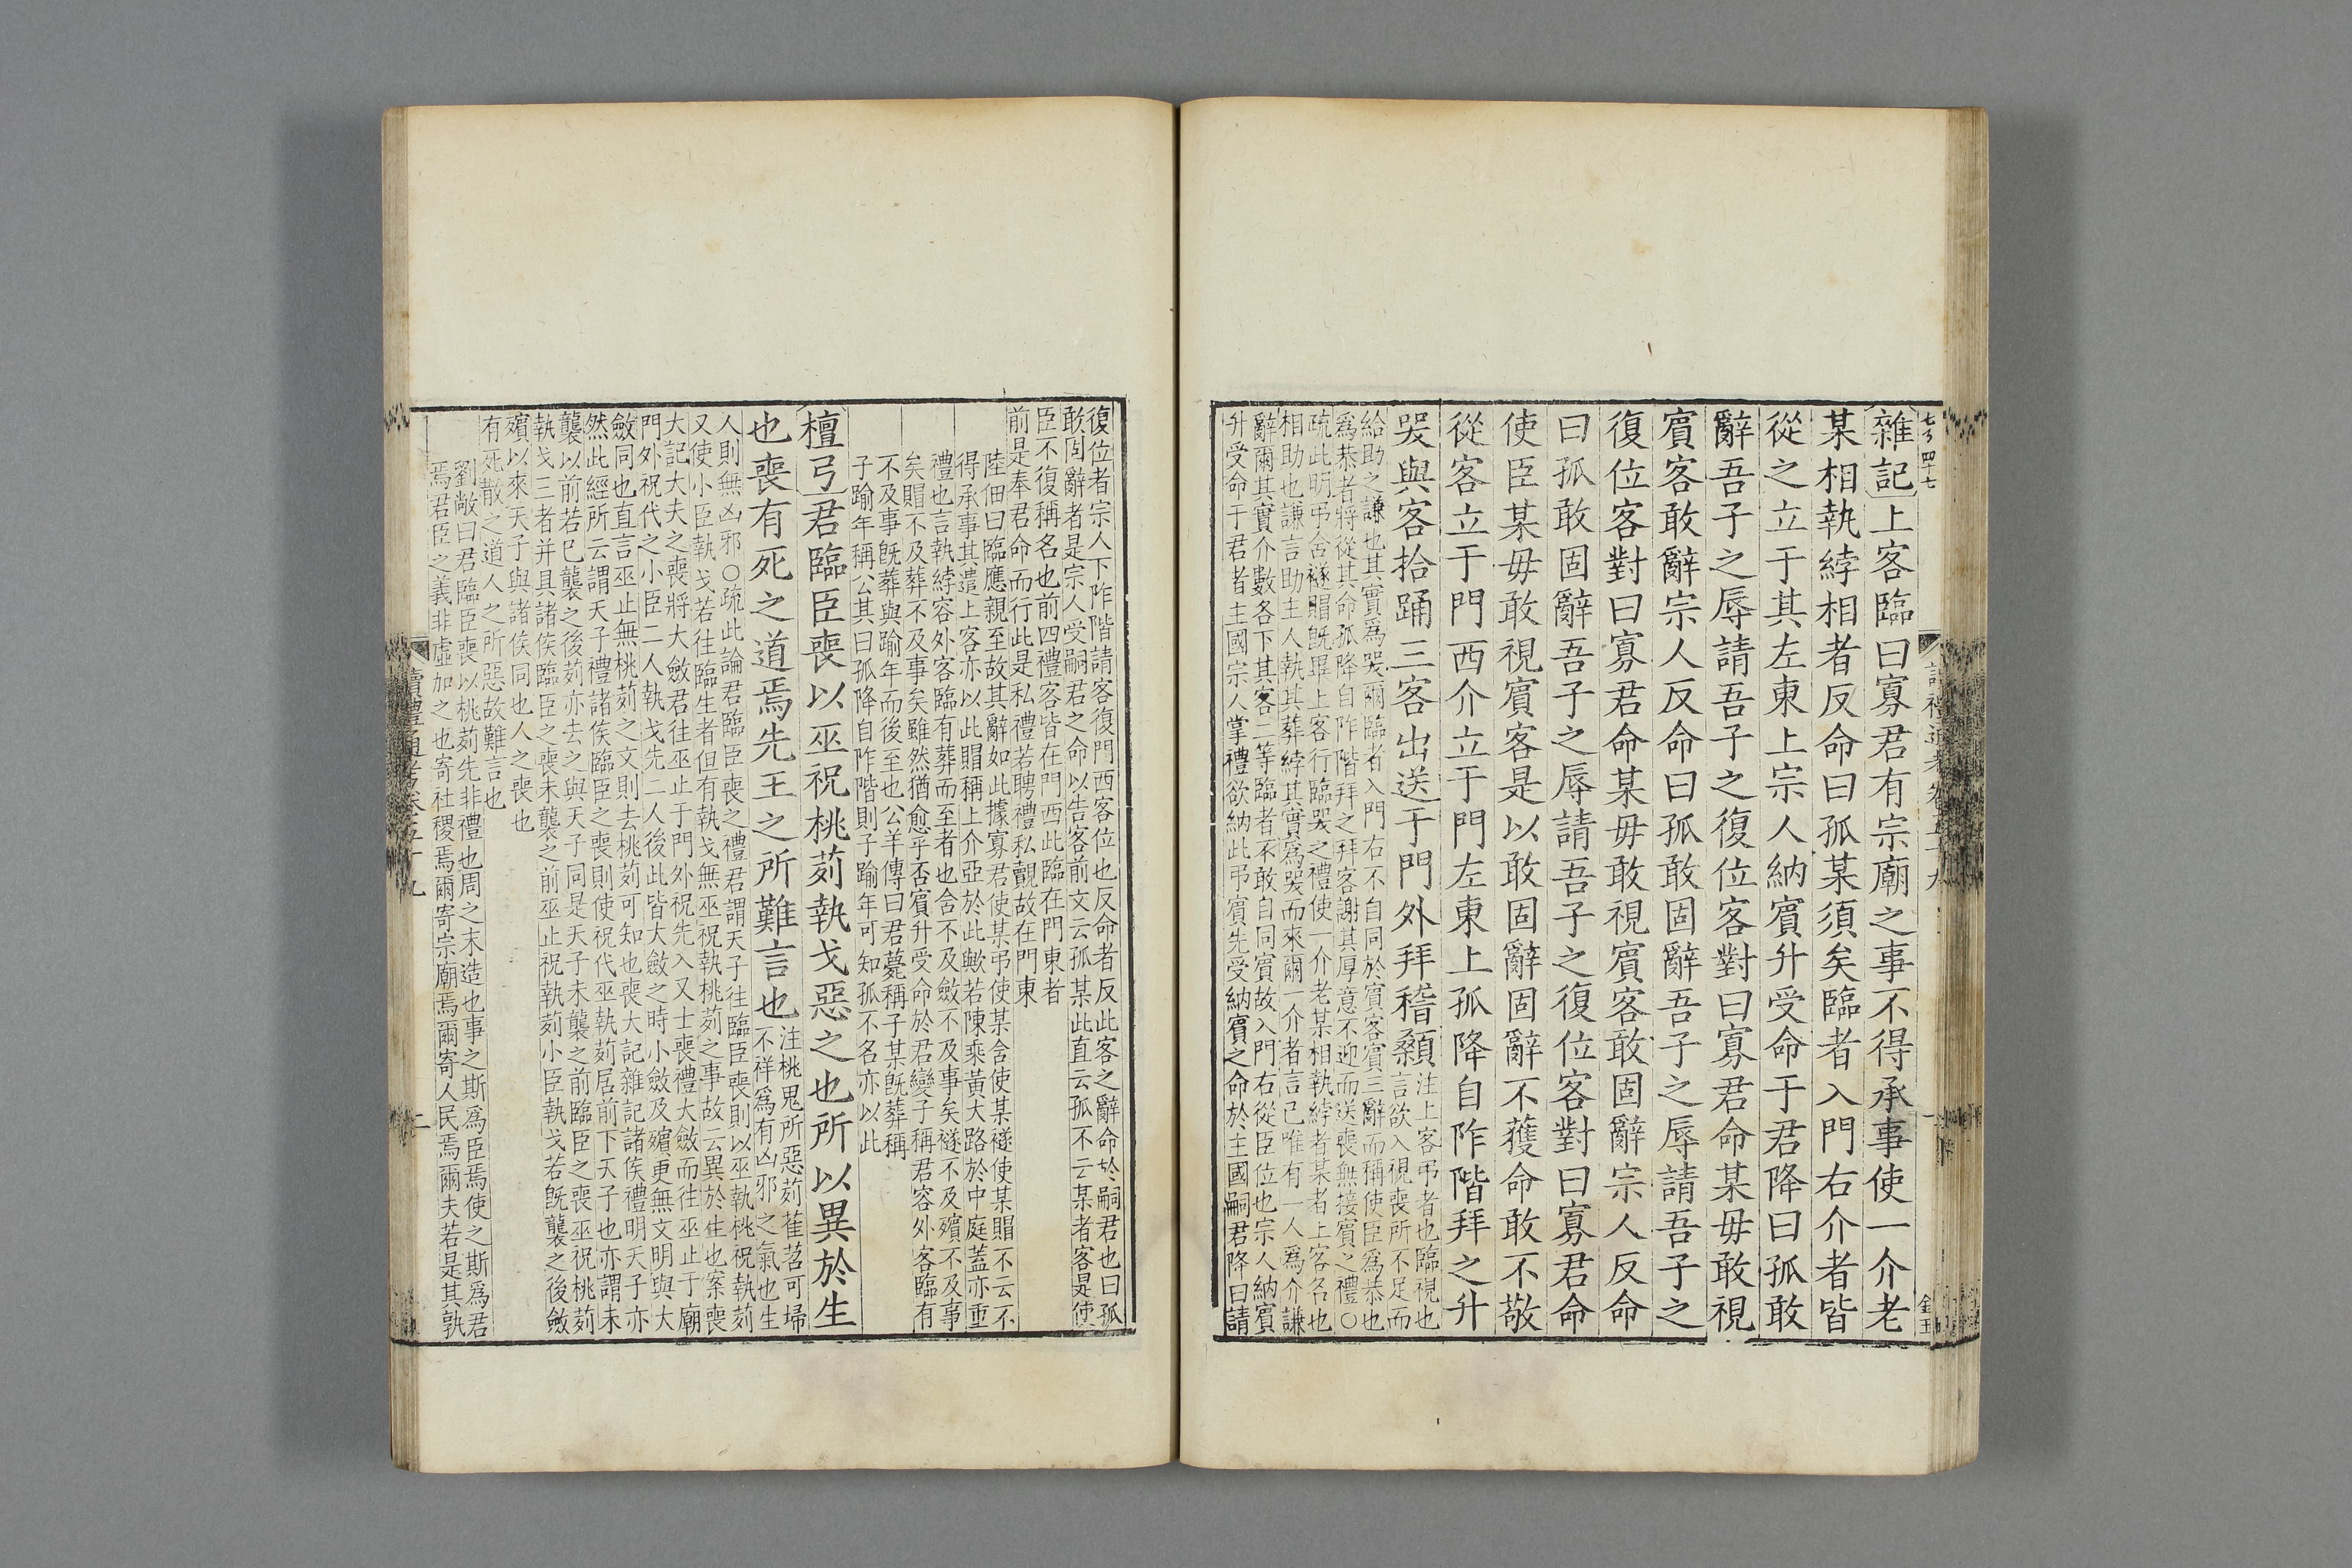 雜記上客臨曰寡君有宗廟之事不得承事使一介老
某相執綍相者反命曰孤某須矣臨者入門右介者皆
從之立于其左東上宗人納賓升受命于君降曰孤敢
辭吾子之辱請吾子之復位客對曰寡君命某毋敢視
賓客敢辭宗人反命曰孤敢固辭吾子之辱請吾子之
復位客對曰寡君命某毋敢視賓客敢固辭宗人反命
曰孤敢固辭吾子之辱請吾子之復位客對曰寡君命
使臣某毋敢視賓客是以敢固辭固辭不獲命敢不敬
從客立于門西介立于門左東上孤降自阼階拜之升
哭與客拾踊三客出送于門外拜稽顙
注上客弔者也臨視也
言欲入視喪所不足而
給助之謙也其實爲哭爾臨者入門右不自同於賓客賓三辭而稱使臣爲恭也
爲恭者將從其命孤降自阼階拜之拜客謝其厚意不迎而送喪無接賓之禮〇
疏此明弔含襚賵既畢上客行臨哭之禮使一介老某相執綍者某者上客名也
相助也謙言助主人執其葬綍其實爲哭而來爾一介者言己唯有一人爲介謙
辭爾其實介數各下其客二等臨者不敢自同賓故入門右從臣位也宗人納賓
升受命于君者主國宗人掌禮欲納此弔賓先受納賓之命於主國嗣君降曰請
復位者宗人下阼階請客復門西客位也反命者反此客之辭命於嗣君也曰孤
敢固辭者是宗人受嗣君之命以告客前文云孤某此直云孤不云某者客是使
臣不復稱名也前四禮客皆在門西此臨在門東者
前是奉君命而行此是私禮若聘禮私覿故在門東
陸佃曰臨應親至故其辭如此據寡君使某弔使某含使某襚使某賵不云不
得承事其遣上客亦以此賵稱上介亞於此歟若陳乘黃大路於中庭蓋亦重
禮也言執綍容外客臨有葬而至者也含不及斂不及事矣襚不及殯不及事
矣賵不及葬不及事矣雖然猶愈乎否賓升受命於君變子稱君容外客臨有
不及事既葬與踰年而後至也公羊傳曰君薨稱子某既葬稱
子踰年稱公其曰孤降自阼階則子踰年可知孤不名亦以此
檀弓君臨臣喪以巫祝桃茢執戈惡之也所以異於生
也喪有死之道焉先王之所難言也
注桃鬼所惡茢萑苕可埽
不祥爲有凶邪之氣也生
人則無凶邪〇疏此論君臨臣喪之禮君謂天子往臨臣喪則以巫執桃祝執茢
又使小臣執戈若往臨生者但有執戈無巫祝執桃茢之事故云異於生也案喪
大記大夫之喪將大斂君往巫止于門外祝先入又士喪禮大斂而往巫止于廟
門外祝代之小臣二人執戈先二人後此皆大斂之時小斂及殯更無文明與大
斂同也直言巫止無桃茢之文則去桃茢可知也喪大記雜記諸侯禮明天子亦
然此經所云謂天子禮諸侯臨臣之喪則使祝代巫執茢居前下天子也亦謂未
襲以前若已襲之後茢亦去之與天子同是天子未襲之前臨臣之喪巫祝桃茢
執戈三者并具諸侯臨臣之喪未襲之前巫止祝執茢小臣執戈若既襲之後斂
殯以來天子與諸侯同也人之喪也
有死散之道人之所惡故難言也
劉敞曰君臨臣喪以桃茢先非禮也周之末造也事之斯爲臣焉使之斯爲君
焉君臣之義非虛加之也寄社稷焉爾寄宗廟焉爾寄人民焉爾夫若是其孰
讀禮通考卷五十九
二